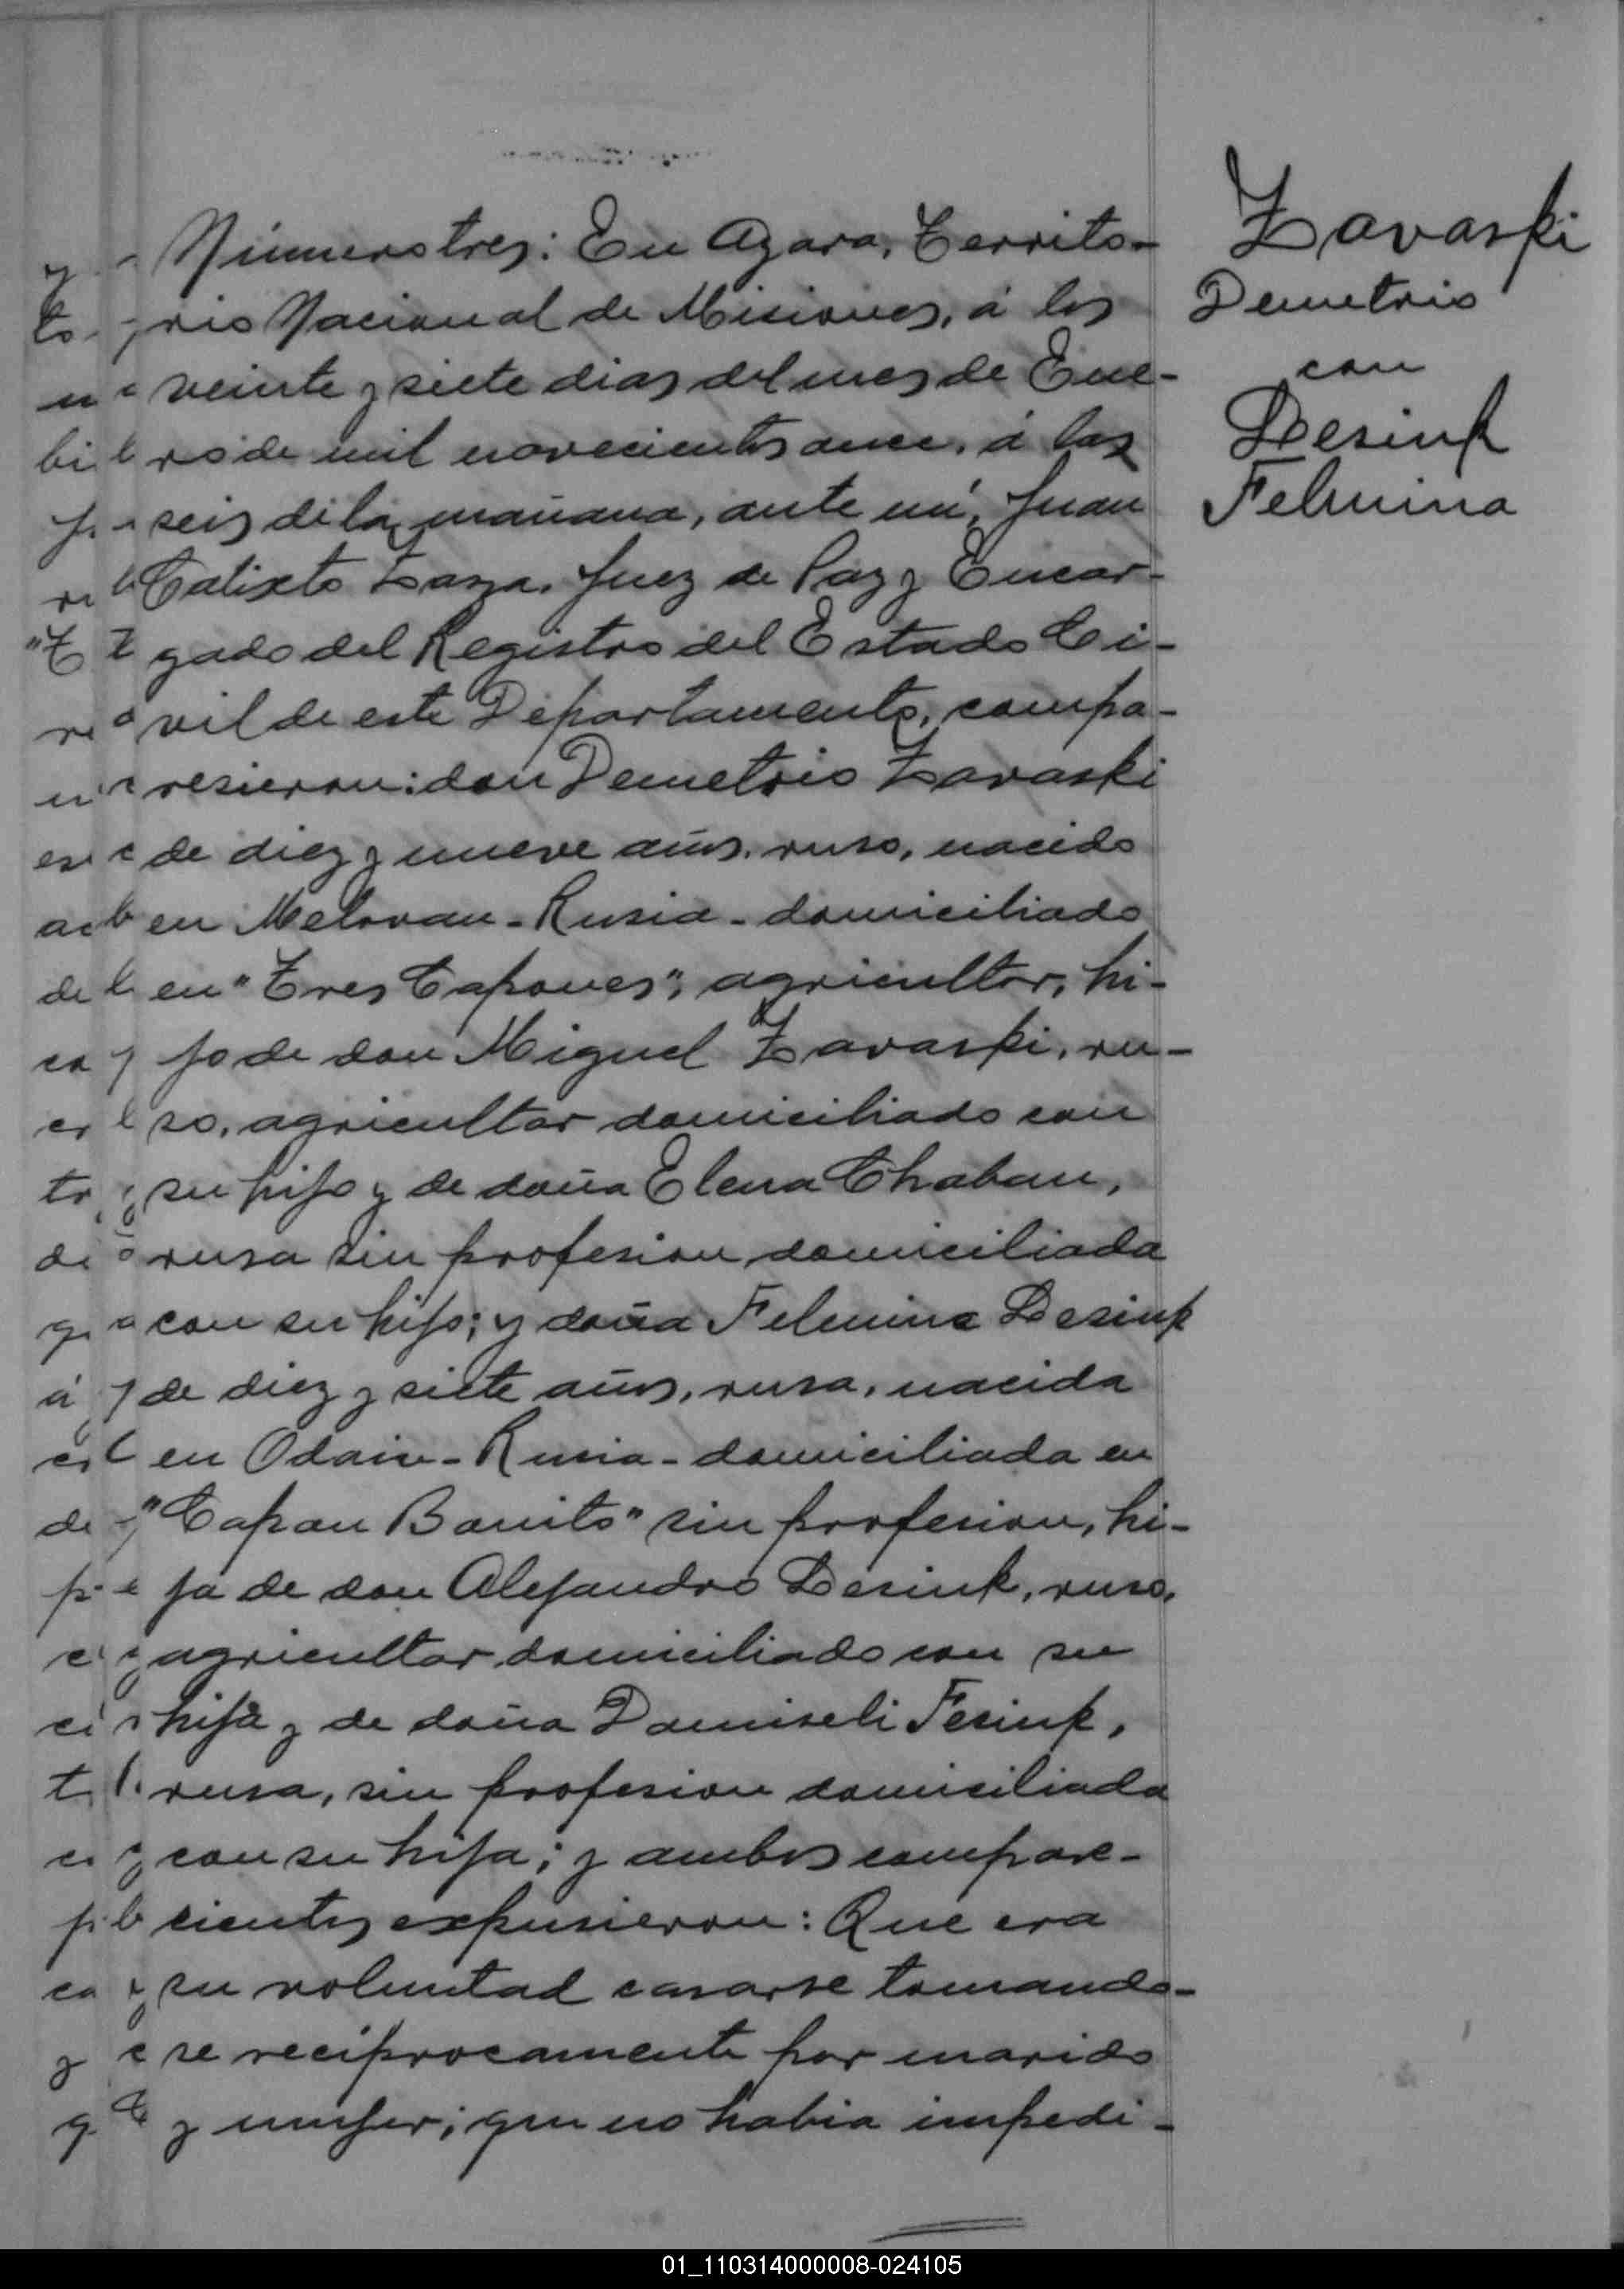 Número tres: En Azara, Territo-
rio Nacional de Misiones, á los
veinte y siete dias del mes de Ene-
ro de mil novecientos once, á las
seis de la mañana, ante mí, Juan
Calixto Laza, Juez de Paz y Encar-
gado del Registro del Estado Ci-
vil de este Departamento, compa-
resieron: don Demetrio Zavaski
de diez y nueve años, ruso, nacido
en Melovan - Rusia - domiciliado
en "Tres Capones", agricultor, hi-
jo de don Miguel Zavaski, ru-
so, agricultor domiciliado con
su hijo y de doña Elena Chaban,
rusa sin profesion domiciliada
con su hijo; y doña Felmina Desink
de diez y siete años, rusa, nacida
en - Rusia - domiciliada en
"Capon Bonito" sin profesion, hi-
ja de don Alejandro Desink, ruso,
agricultor domiciliado con su
hija y de doña Damiseli Fesink,
rusa, sin profesion domiciliada
con su hija; y ambos compare-
cientes expusieron: Que era
su voluntad casarse tomando-
se recíprocamente por marido
y mujer; que no habia impedi-
Zavaski
Demetrio
con
Desink
Felmina
01_110314000008-024105